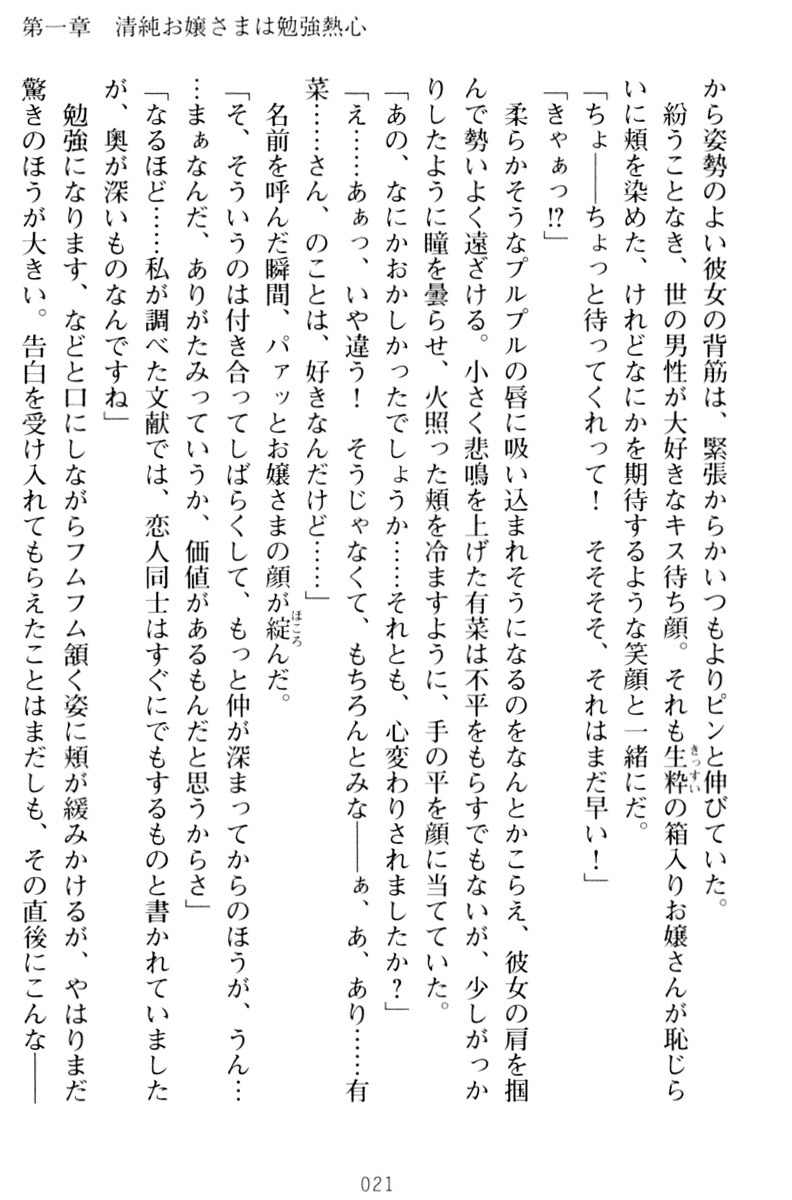 第一章　清純お嬢さまは勉強熱心
から姿勢のよい彼女の背筋は、緊張からかいつもよりピンと伸びていた。
　紛うことなき、世の男性が大好きなキス待ち顔。それも生粋の箱入りお嬢さんが恥じら
いに頬を染めた、けれどなにかを期待するような笑顔と一緒にだ。
「ちょ――ちょっと待ってくれって！　そそそそ、それはまだ早い！」
「きゃぁっ!?」
　柔らかそうなプルプルの唇に吸い込まれそうになるのをなんとかこらえ、彼女の肩を掴
んで勢いよく遠ざける。小さく悲鳴を上げた有菜は不平をもらすでもないが、少しがっか
りしたように瞳を曇らせ、火照った頬を冷ますように、手の平を顔に当てていた。
「あの、なにかおかしかったでしょうか……それとも、心変わりされましたか？」
「え……あぁっ、いや違う！　そうじゃなくて、もちろんとみな――ぁ、あ、あり……有
菜……さん、のことは、好きなんだけど……」
　名前を呼んだ瞬間、パァッとお嬢さまの顔が綻んだ。
「そ、そういうのは付き合ってしばらくして、もっと仲が深まってからのほうが、うん…
…まぁなんだ、ありがたみっていうか、価値があるもんだと思うからさ」
「なるほど……私が調べた文献では、恋人同士はすぐにでもするものと書かれていました
が、奥が深いものなんですね」
　勉強になります、などと口にしながらフムフム頷く姿に頬が緩みかけるが、やはりまだ
驚きのほうが大きい。告白を受け入れてもらえたことはまだしも、その直後にこんな――
021